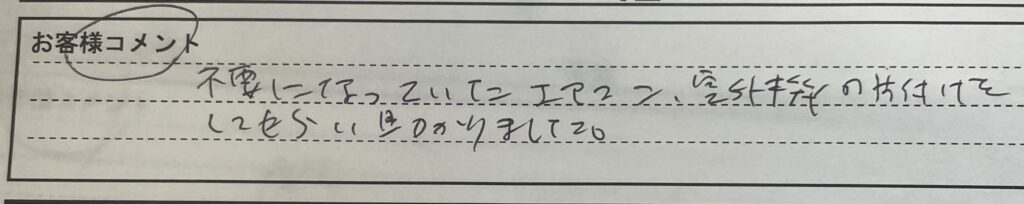 お客様コメント
不要になっていたエアコン、室外機の片付けを
してもらい助かりました。